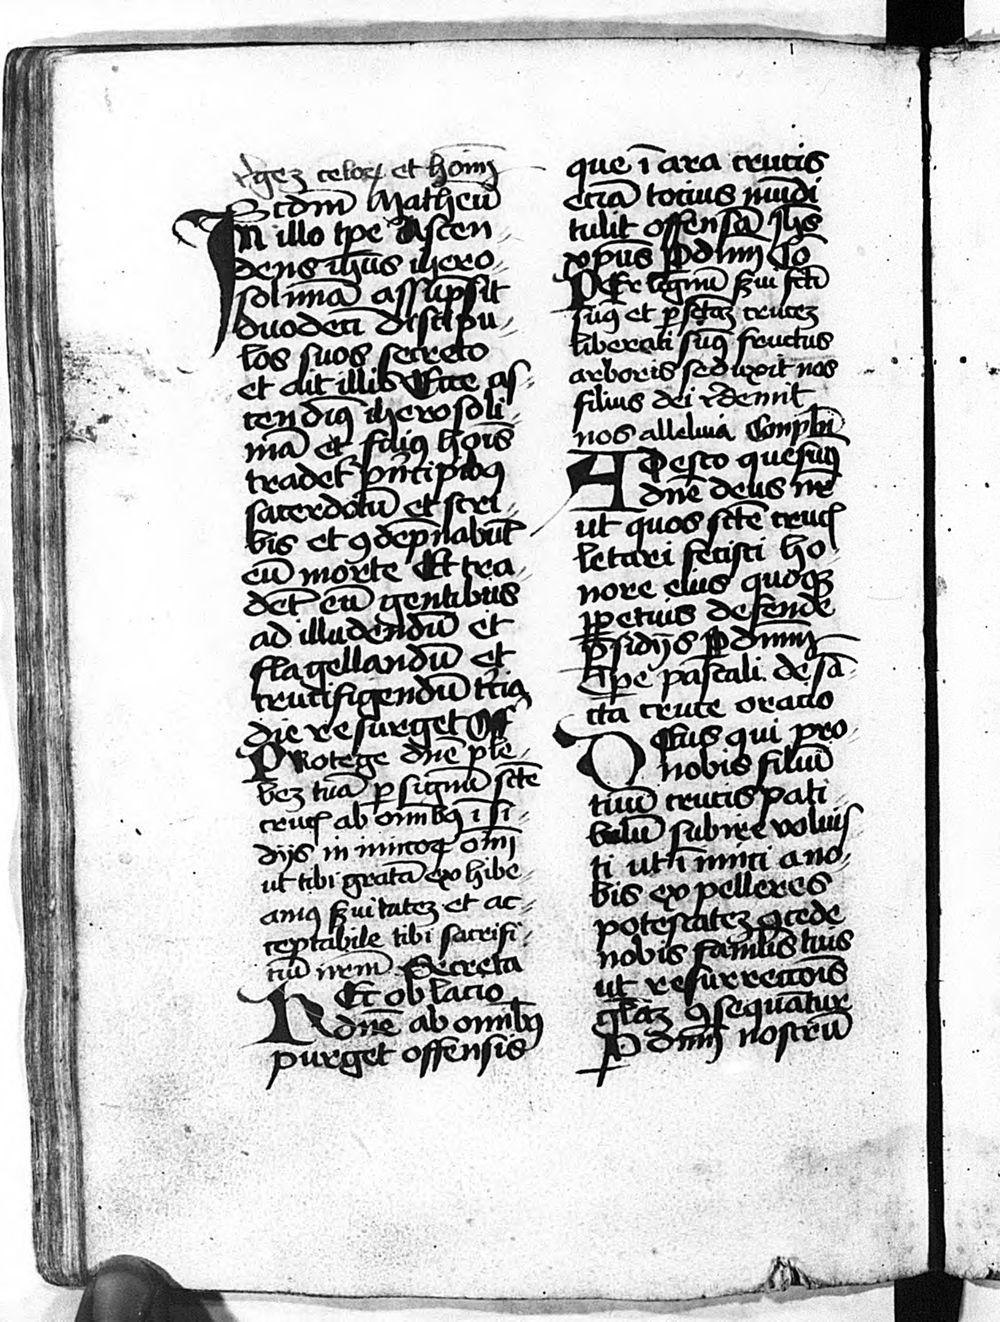 regez celoꝝ et hoīm
Scdm̄ Matheū
In illo tp̄e Ascen
dens ih̄us ihero
solimā assūpsit
duodeci discipu
los suos secreto
et ait illis Ecce as
cendimꝰ iherosoli
mā et filiꝰ hoīs
tradet̄ pn̄cipibꝰ
sacerdotū et scri
bis et ꝯdēpnabūt
eū morte Et tra
dēt eū gentibus
ad illudendū et
flagellandū et
crucifigendū t̄cia
die resurget Off
Protege dn̄e ple
bez tuā ꝑ signū scē
crucꝭ ab om̄ibꝰ ī si
dijs inimicoꝝ om̄i
ut tibi gratā exhibe
amꝰ ẜuitatez et ac
ceptabile tibi sacrifi
ciū nr̄m Secreta
Hec oblacio
dn̄e ab om̄ibꝰ
purget offensis
que ī ara crucis
eciā tocius mūdi
tulit offensā Ih̄s
xp̄us P dn̄m Cō
Per lignū ẜui fcti
sumꝰ et ꝑ sctāz crucez
liberati sumꝰ fructus
arboris seduxit nos
filius dei redemit
nos alleluia Conpld̄
Adesto quesumꝰ
dn̄e deus nr̄
ut quos scē crucꝭ
letari fecisti ho
nore eius quoqꝫ
ꝑpetuis defende
p̄sidijs P dn̄m
Tp̄e pascali de sā
cta cruce oracio
Deus qui pro
nobis filiū
tuū crucis pati
bulū subire volui
sti ut inimici a no
bis expelleres
potestatez ꝯcede
nobis famul̄is tuis
ut resurrectōis
gr̄āz ꝯsequātur
P dn̄m nostrū